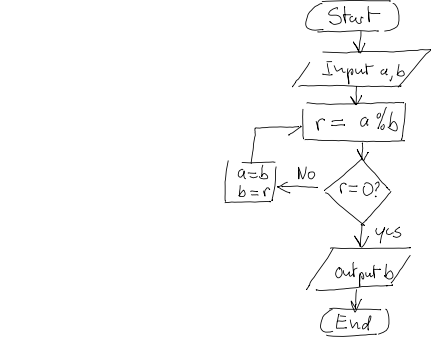 Start
Input a,b
r = a%b
No
a=b
b=r
r=0?
yes
output b
End